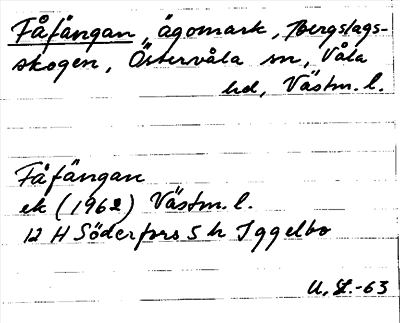 Fåfängan, ägomark, Bergslags-
skogen, Östervåla sn, Våla
hd, Västm. l.
Fåfängan
ek (1962) Västm. l.
12 H Söderfors 5 h Iggelbo
U. L.-63